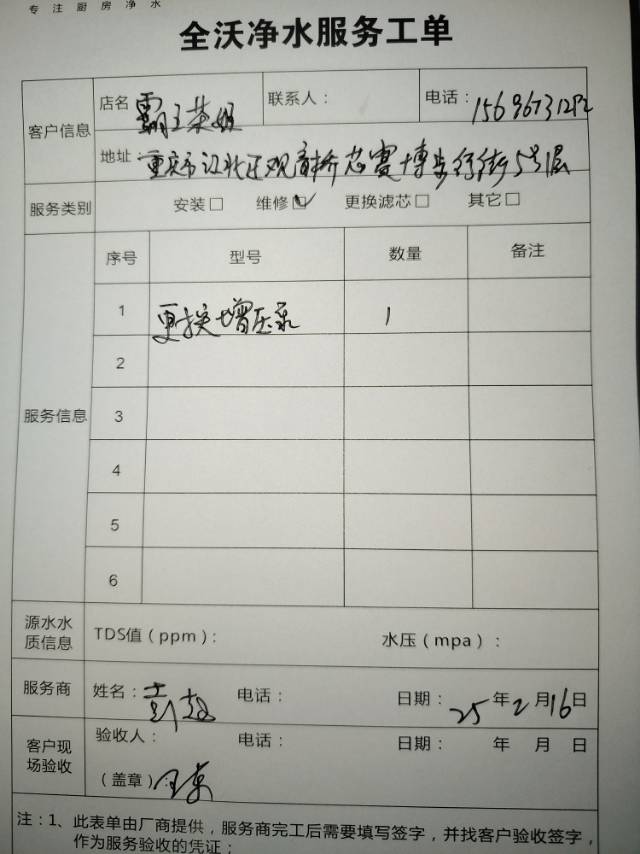 专注厨房净水
全沃净水服务工单
客户信息
店名 霸王茶姬 联系人： 电话：
地址 重庆市江北区观音桥芯赛博步行街5号1层
服务类别 安装□ 维修☑ 更换滤芯□ 其它□
服务信息
序号 型号 数量 备注
1 更换增压泵 1
2
3
4
5
6
源水水质信息 TDS值（ppm）： 水压（mpa）：
服务商 姓名： 电话： 日期：25年2月16日
客户现场验收
验收人： 电话： 日期： 年 月 日
（盖章）
注：1、此表单由厂商提供，服务商完工后需要填写签字，并找客户验收签字，
作为服务验收的凭证；